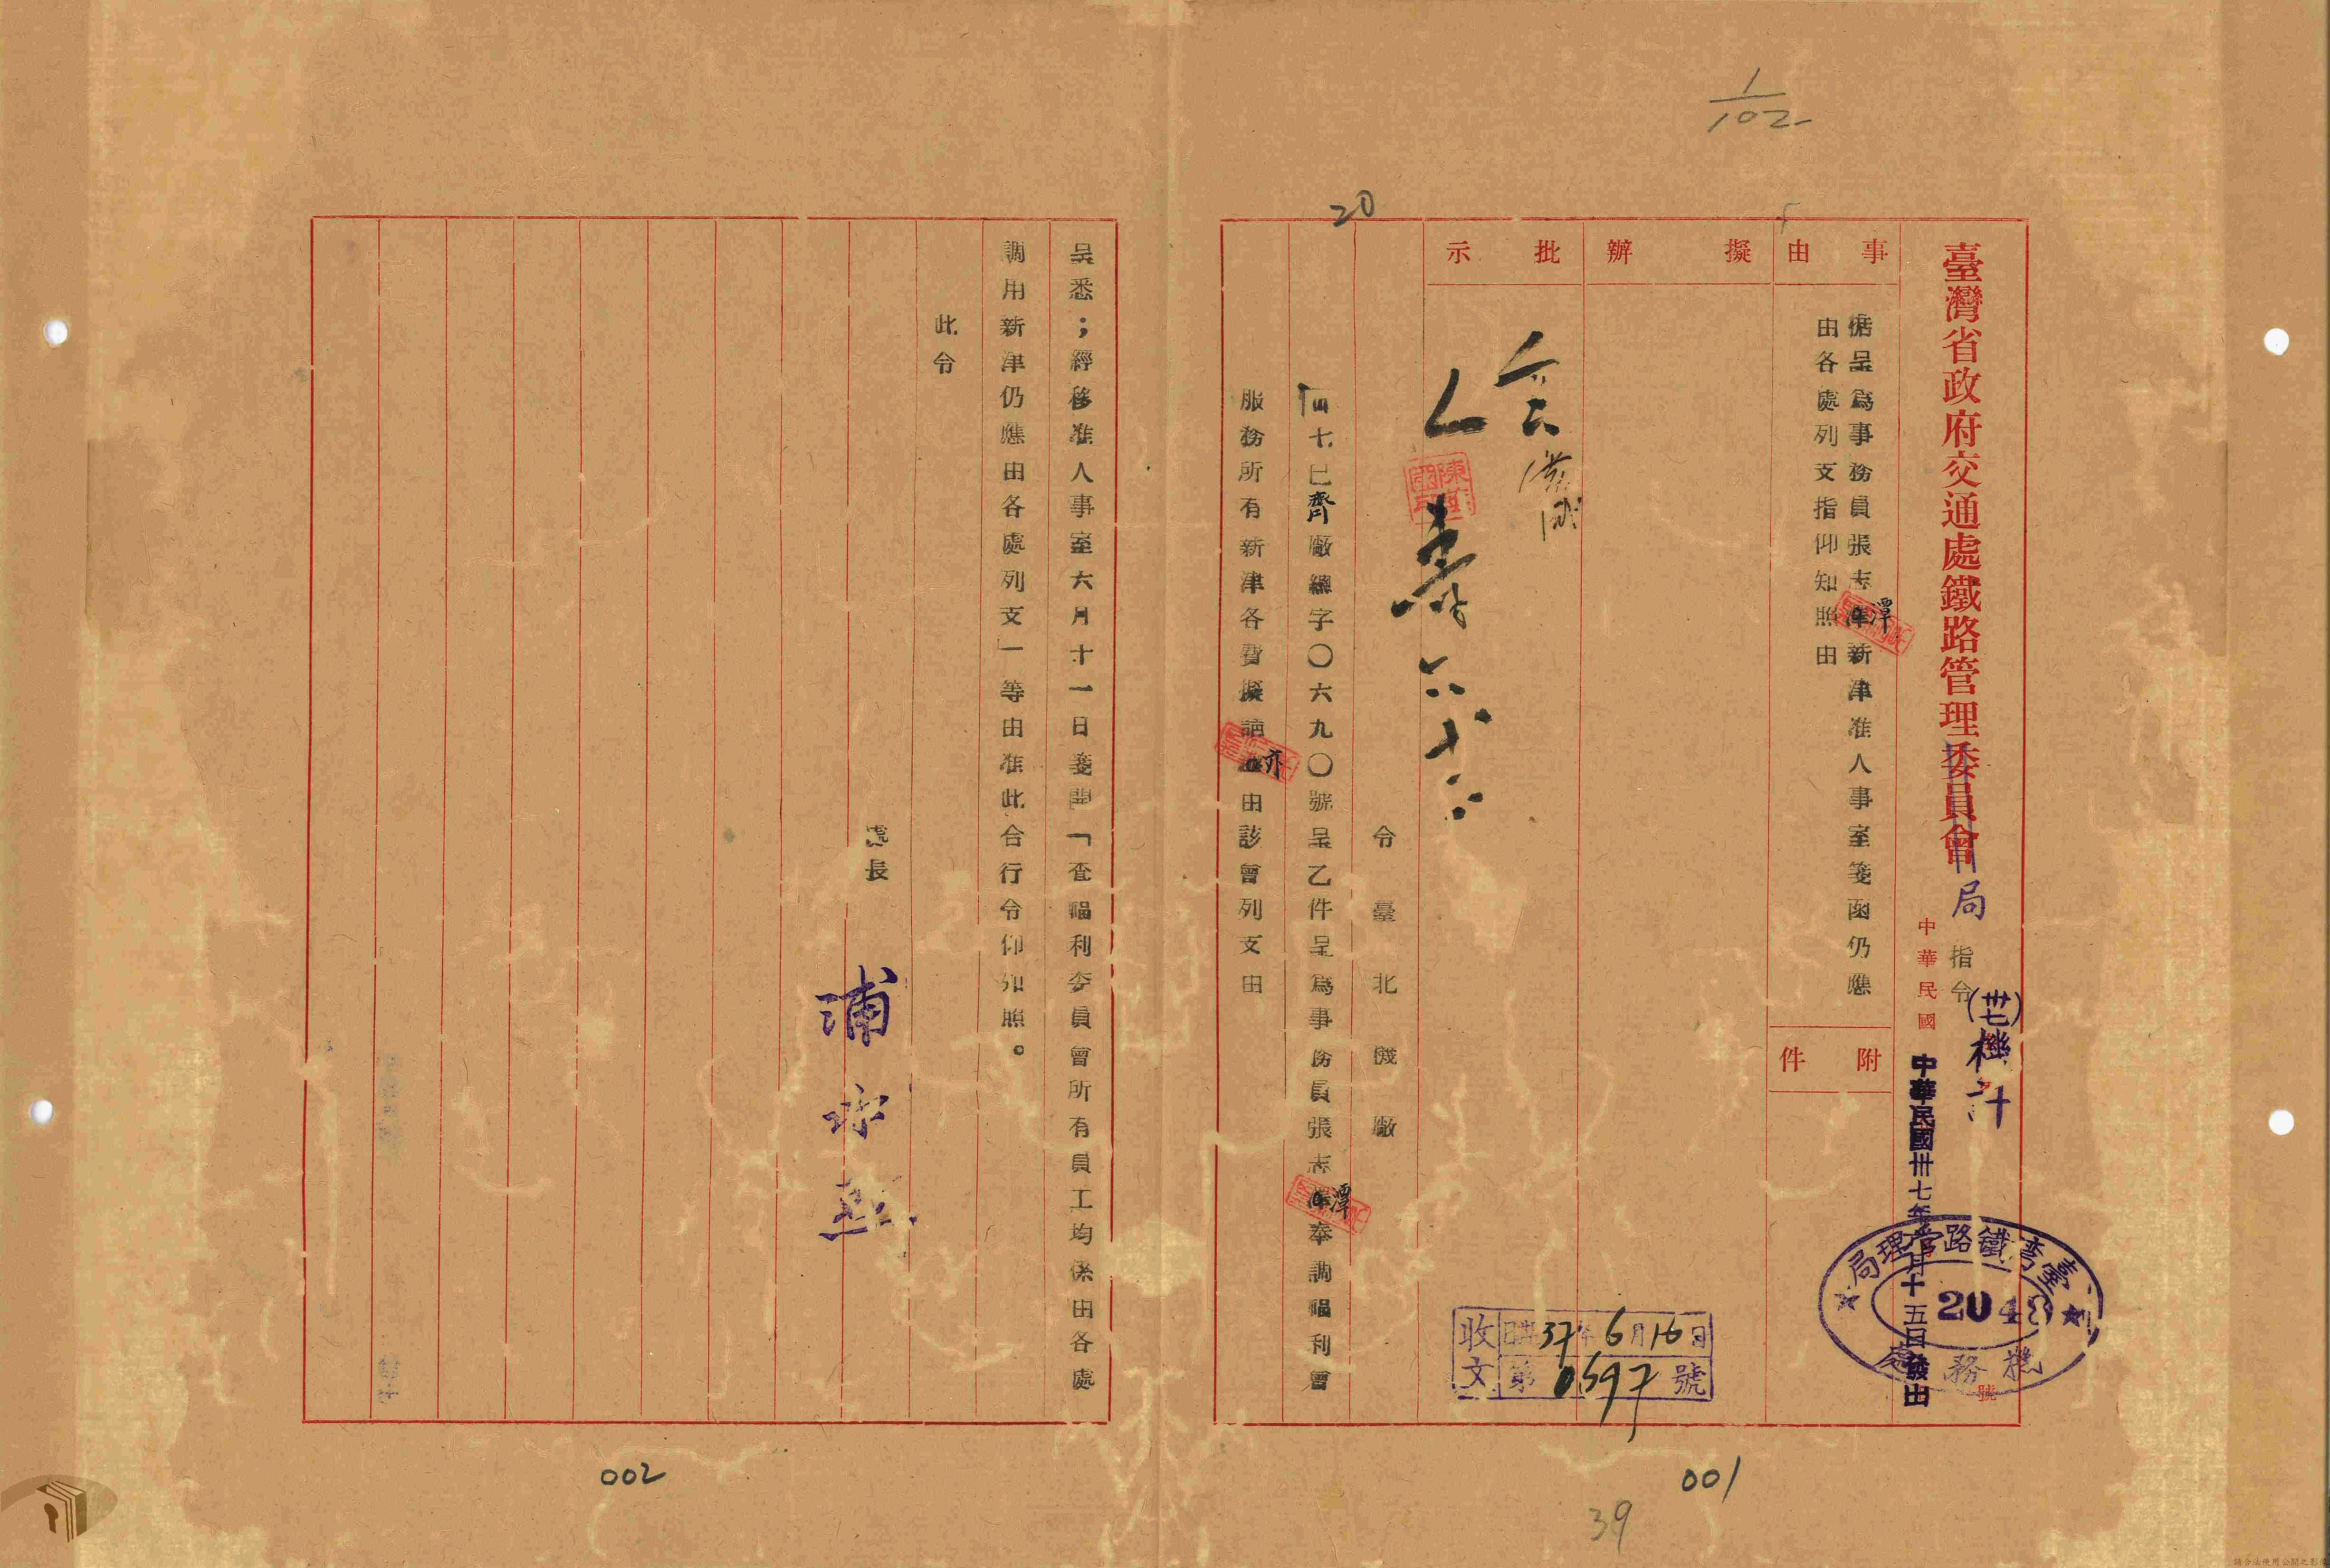 1/102
20
臺灣省政府交通處鐵路管理委員會局
指令
(卅七)機
中華民國
中華民國卅七年六月十五日發出
臺灣鐵路管理局
2048
機務處
號
事由
據呈為事務員張志潭新津准人事室箋函仍應
由各處列支指仰知照由
附件
擬辦
批示
收文
37年6月16日
第0597號
令臺北機廠
四七已齊廠總字〇六九〇號呈乙件呈為事務員張志潭奉調福利會
服務所有新津各費擬請亦由該會列支由
呈悉;經移准人事室六月十一日箋開「查福利委員會所有員工均係由各處
調用新津仍應由各處列支」等由准此合行令仰知照。
此令
處長
001
002
39
請合法使用公開之影像